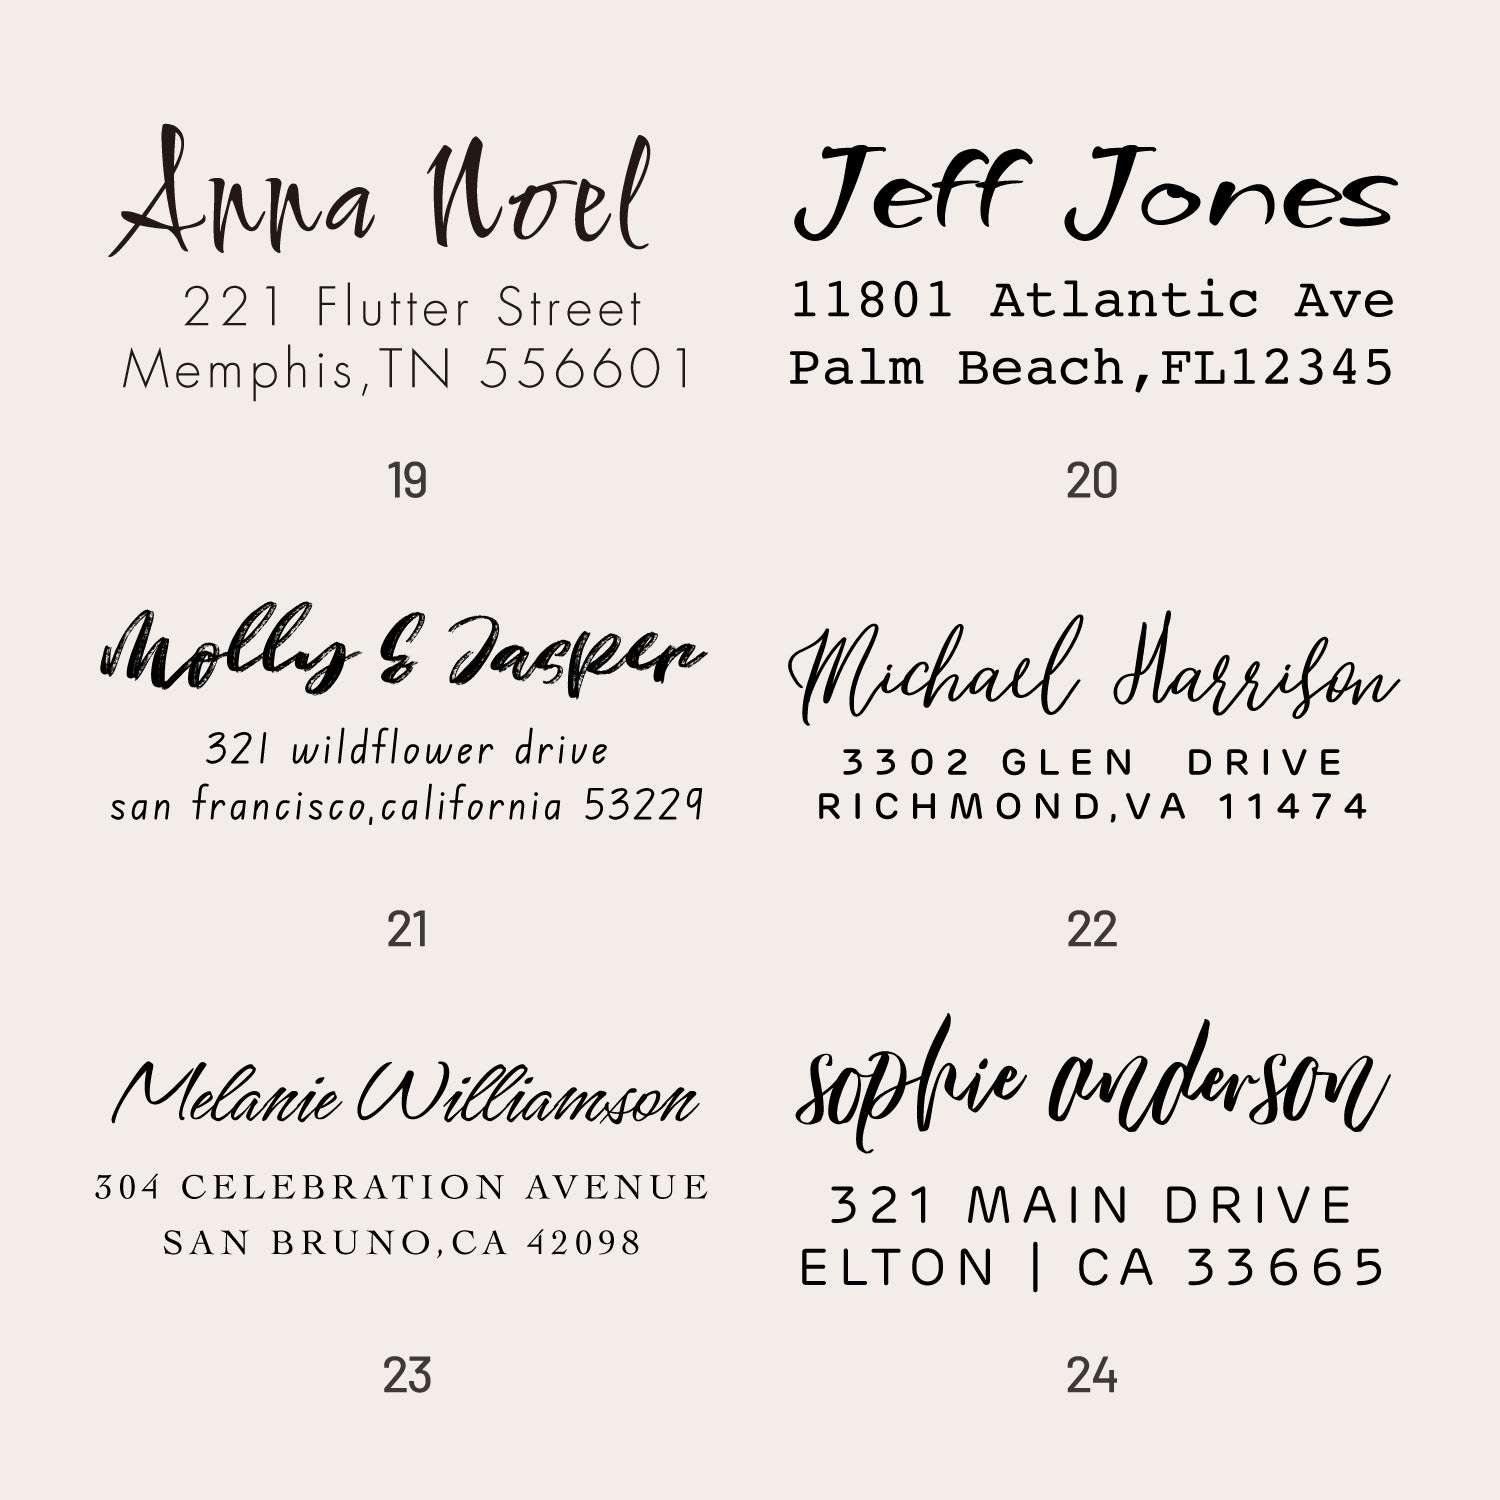 Anna Noel
221 Flutter Street
Memphis,TN 556601
19
Jeff Jones
11801 Atlantic Ave
Palm Beach,FL12345
20
Molly & Jasper
321 wildflower drive
san francisco,california 53229
21
Michael Harrison
3302 GLEN DRIVE
RICHMOND,VA 11474
22
Melanie Williamson
304 CELEBRATION AVENUE
SAN BRUNO,CA 42098
23
sophie anderson
321 MAIN DRIVE
ELTON | CA 33665
24